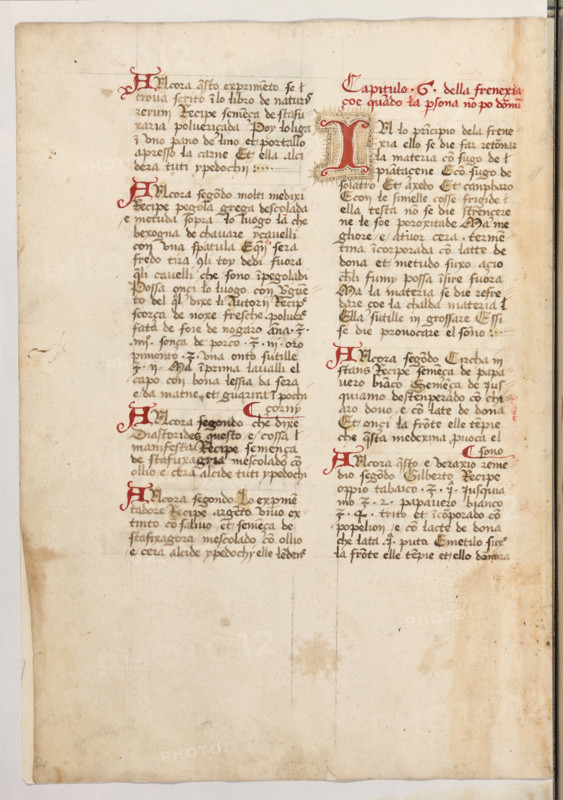 Alcora q̄sto exprimēto se ł
troua scrito ĩ lo libro de naturis
rerum Recipe semēça de stafu
xaria poluerizada Poy lo liga
ĩ vno pano de lino et portallo
apresso la carne Et ella alci
dera tuti ypedochi
Alcora segōdo molti medixi
Recipe pegola grega descolada
e metuda sopra lo luogo la che
bexogna de chauare ycauelli
con vna spatula Eq̄n sera
fredo tira q̄li toy dedi fuora
q̄li cauelli che sono ĩpegoladi
Possa onci lo luogo con vgūe
to del q̄l dixe li Autorii Recipe
scorça de noxe fresche poluere
fata de foie de nogaro ana ʒ
iiij sonça de porco ʒ iij oro
pimento ʒ vna onto sutille
ʒ ij Ma ĩprima laualli el
capo con bona lessia da sera
e da matne et guarira ĩ pochi
zorny
Alcora segondo che dixe
Diastorides questo e cossa ł
manifesta Recipe semença
de stafuxagria mescolado cō
ollio e cera alcide tuti ypedochi
Alcora segondo Lo exprimē
tadore Recipe argēto viuo ex
tinto cō saliuo et semeça de
stafixagora mescolado cō ollio
e cera alcide ypedochy elle lēdene
Capitulo 6 della frenexia
çoe quādo la psona nō po dormir
IN lo prīcipio dela frene
xia ello se die far retornar
la materia cō sugo de ł
piātacene E cō sugo de
solatro Et axedo Et canpharo
E con le simelle cosse frigide ł
ella testa nō se die strēncere
ne le soe poroxitade Ma me
gliore e ātuor cera terme
tina ĩcorporada cō latte de
dona et metudo suxo açio
chelli fumy possa ĩsire fuora
Ma la materia se die refre
dare coe la chalda materia ł
Ella sutille in grossare E ssi
se die prouocare el sono
Alcora segōdo Circha in
stans Recipe semēça de papa
uero biāco Semēça de Jus
quiamo destenperado cō chi
aro douo e cō late de dona
Et onçi la frōte elle tēpie
che q̄sta medexima puoca el
sono
Alcora q̄sto e veraxio reme
dio segōdo Gilberto Recipe
oppio tabaico ʒ j Jusquia
mo ʒ 2 papauero bianco
ʒ 4 trito et ĩcōporado cō
popelion e cō lacte de dona
che lata j puta Emetilo suxo
la frōte elle tēpie et ello dormira